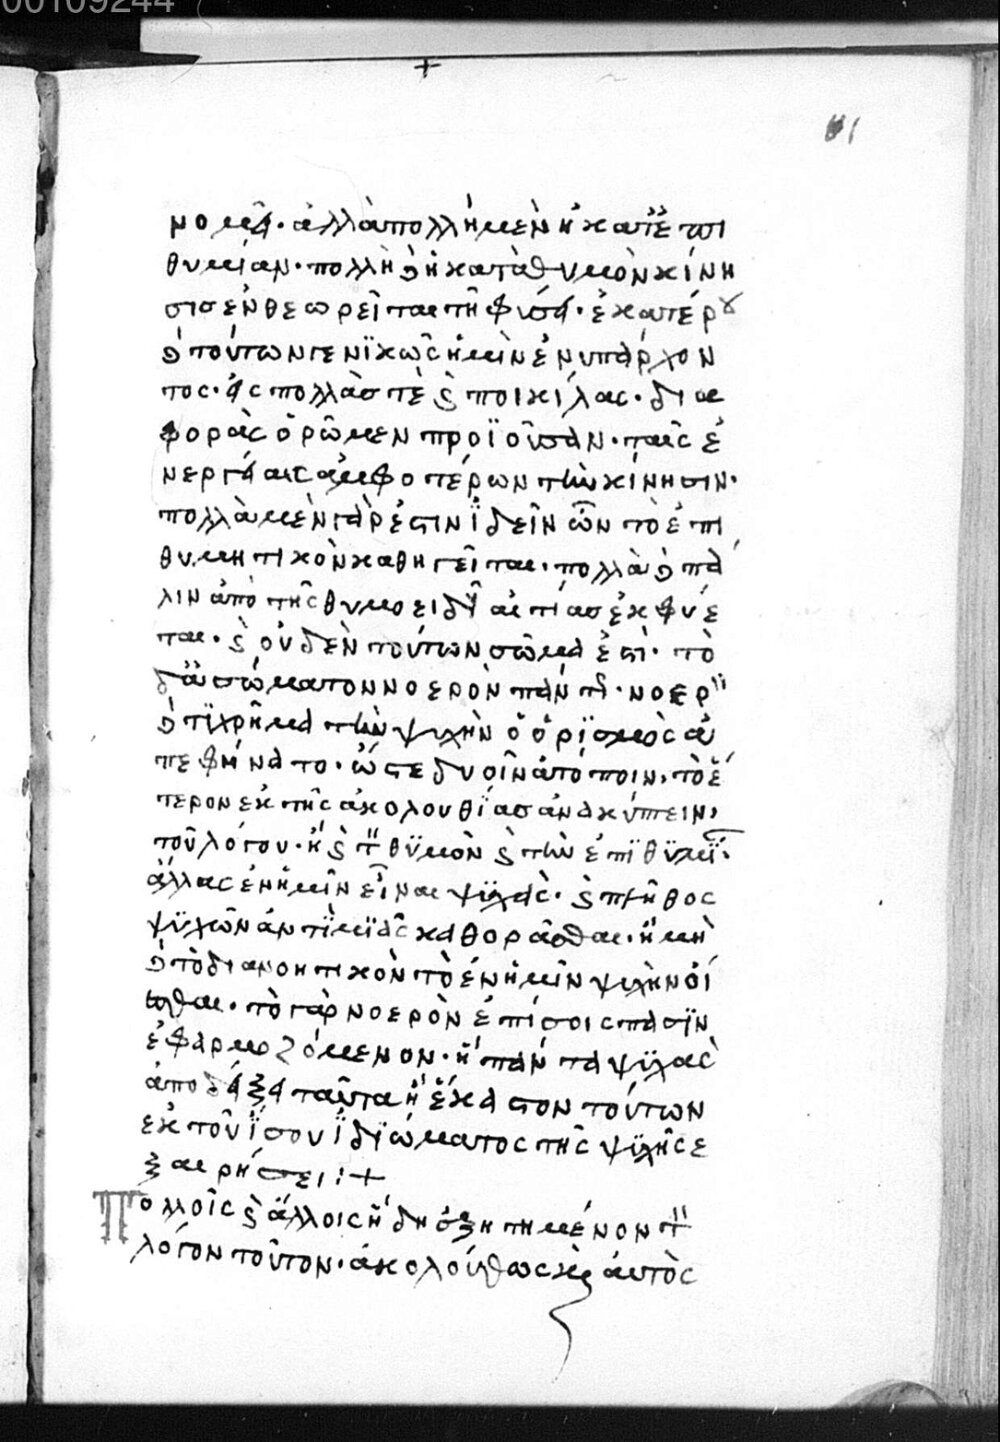 00109244
+
νομεῖ· ἀλλὰ πολλὴ μὲν ἡ κατ' ἐπι
θυμίαν· πολλὴ δὲ ἡ κατὰ θυμὸν κίνη
σις ἐνθεωρεῖται τῆ φύσει· ἑκατέρου
δὲ τούτων γενϊκῶς ἡμῖν ἐνυπάρχον
τος· εἰς πολλάς τε καὶ ποικίλας· δια
φορὰς ὁρῶμεν προϊοῦσαν· ταῖς ἐ
νεργείαις ἀμφοτέρων τὴν κίνησιν·
πολλὰ μὲν γὰρ ἔστιν ἰδεῖν ὧν τὸ ἐπι
θυμητικὸν καθηγεῖται· πολλὰ δὲ πά
λιν ἀπὸ τῆς θυμοειδοῦς αἰτίας ἐκφύε
ται· καὶ οὐδὲν τούτων σῶμά ἐστι· τὸ
δὲ ἀσώματον νοερὸν πάντως· νοερὸν
δέ τϊ χρῆμα τὴν ψυχὴν ὁ ὁρϊσμὸς ἀ
πεφήνατο· ὥστε δυοῖν ἀτόποιν, τὸ ἕ
τερον ἐκ τῆς ἀκολουθΐας ἀνακύπτειν,
τοῦ λόγου· ἢ καὶ τὸν θϋμὸν καὶ τὴν ἐπϊθϋμΐαν·
ἄλλας ἐν ἡμῖν εἶναι ψϋχὰς· καὶ πλῆθος
ψϋχῶν ἀντὶ μϊᾶς καθορᾶσθαι· ἢ μὴ
δὲ τὸ διανοητικὸν τὸ ἐν ἡμῖν ψυχὴν οἴ
εσθαι· τὸ γὰρ νοερὸν ἐπίσοις πασϊν
ἐφαρμοζόμενον· ἢ πάντα ψϋχὰς
ἀποδείξει ταῦτα ἢ ἕκαστον τούτων
ἐκ τοῦ ἴσου ἰδϊώματος τῆς ψϋχῆς ἐ
ξαιρήσει:+
Πολλοῖς καὶ ἄλλοις ἤδη ἐζητημένον τὸν
λόγον τοῦτον· ἀκολούθως καὶ αὐτὸς